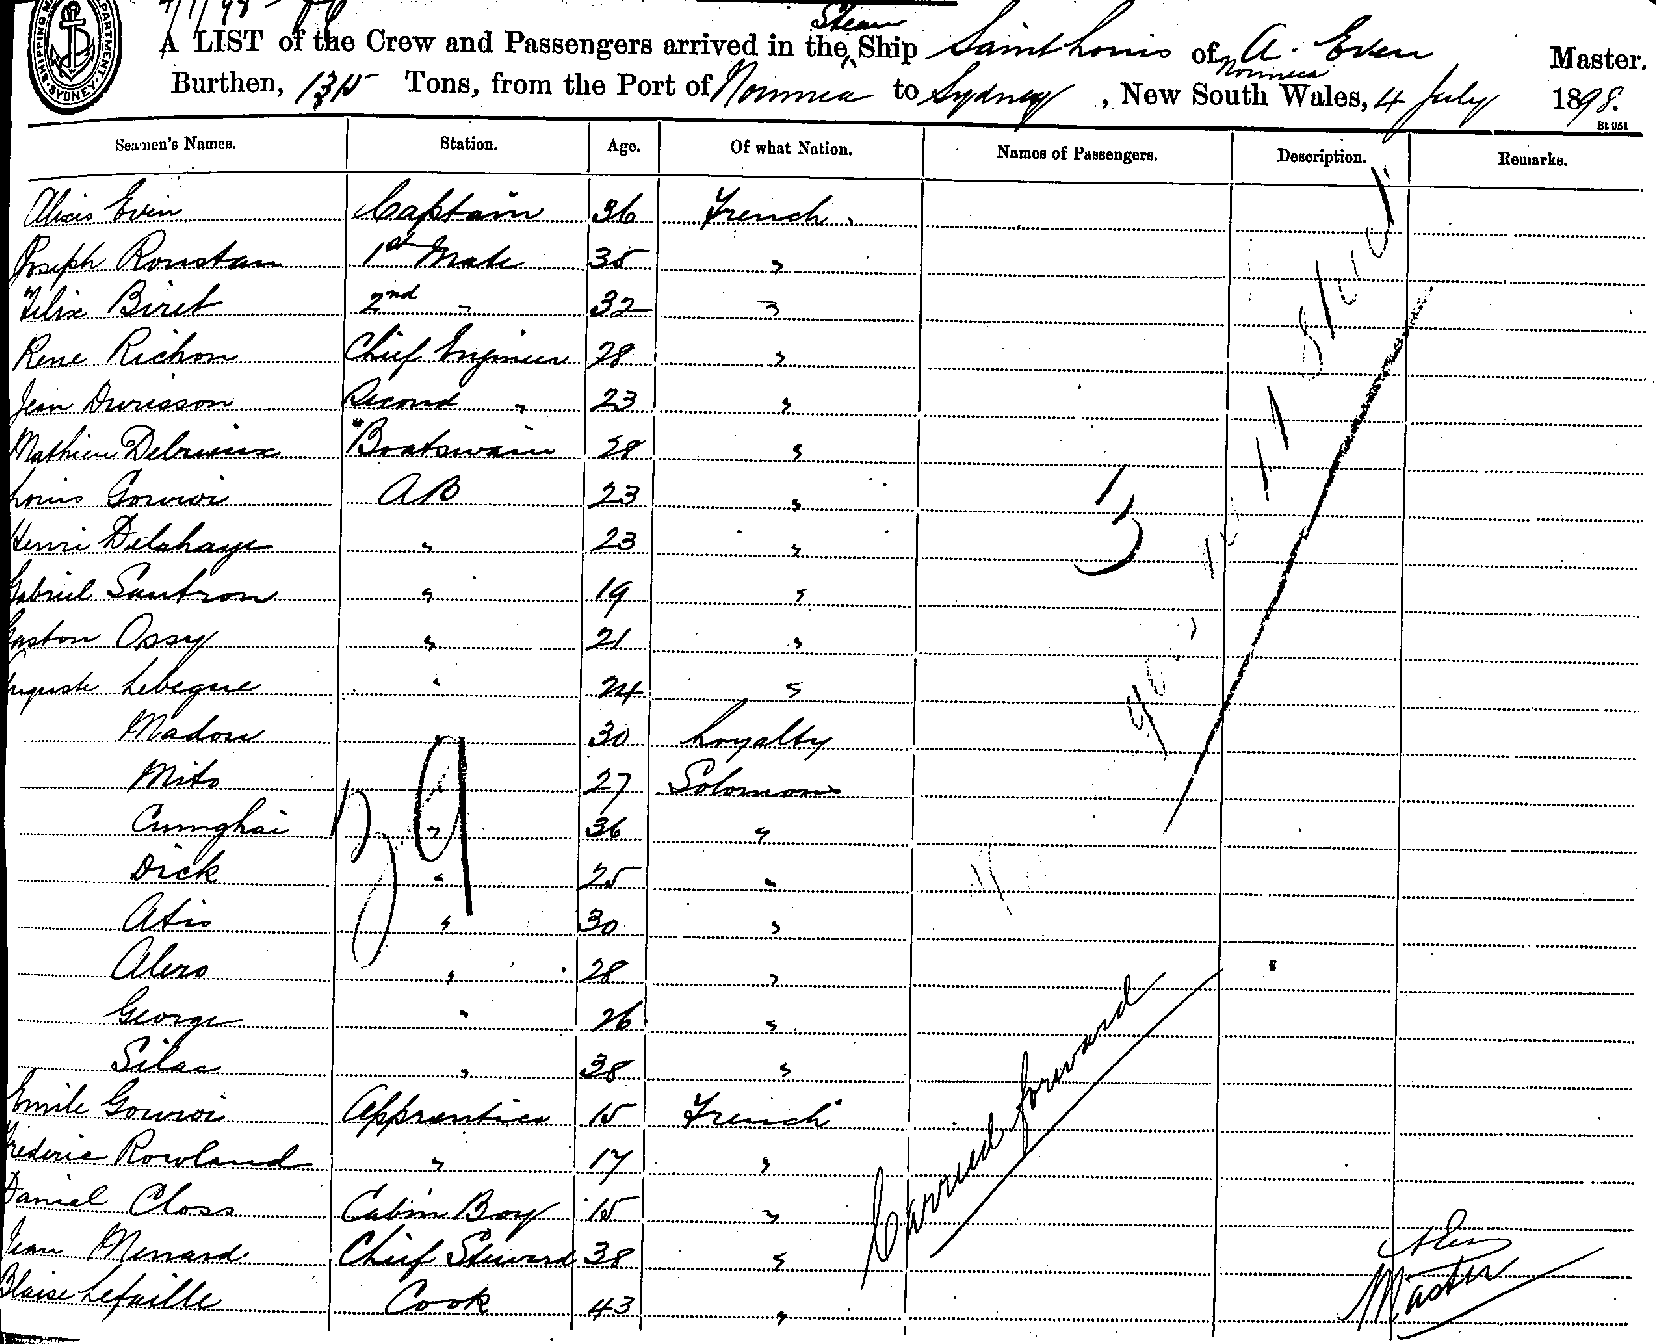 SHIPPING MA DEPARTMENT SYDNEY
7/7/98
Steam
A LIST of the Crew and Passengers arrived in the Ship Saint Louis of A. Even Master.
Noumea
Burthen, 1315 Tons, from the Port of Noumea to Sydney, New South Wales, 4 July 1898.
Seamen's Names. Station. Age. Of what Nation. Names of Passengers. Description. Remarks.
Alexis Evin Captain 36 French.
Joseph Roustan 1st Mate 35 "
Felix Biret 2nd " 32 "
Rene Richon Chief Engineer 28 "
Jean Duvisson Second " 23 "
Mathieu Delrieux Boatswain 28 "
Louis Gourvoi AB 23 "
Henri Delahaye " 23 "
Gabriel Santron " 19 "
Gaston Ossy " 21 "
Auguste Lebegue " 24 "
Madou 30 Loyalty
Mito 27 Solomons
39
Cumghai " 36 "
Dick " 25 "
Atis " 30 "
Alero " 28 "
George " 26 "
Silas " 38 "
Emile Gourvoi Apprentice 15 French
Frederic Rowland " 17 "
Daniel Closs Cabin Boy 15 "
Jean Menard Chief Steward 38 "
Blaise Lefaille Cook 43 "
Carried forward
A Even
Master